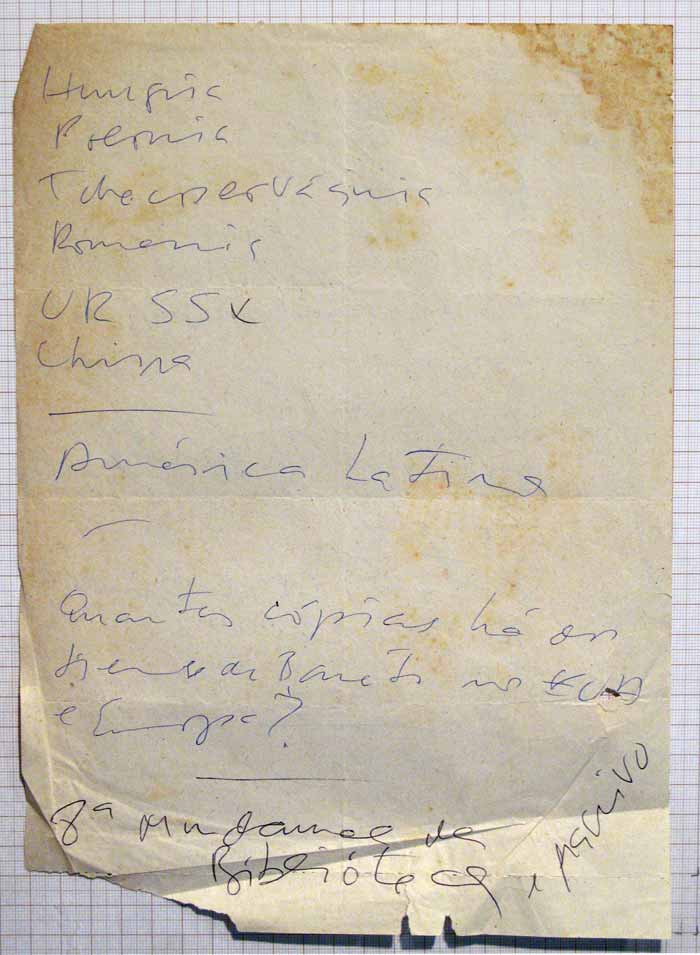 Hungria
Polonia
Tchecoslováquia
Romenia
URSS x
China
América Latina
Quantas cópias há dos
filmes de Barreto nos EUA
e Europa?
8ª mudança da
Biblióteca e